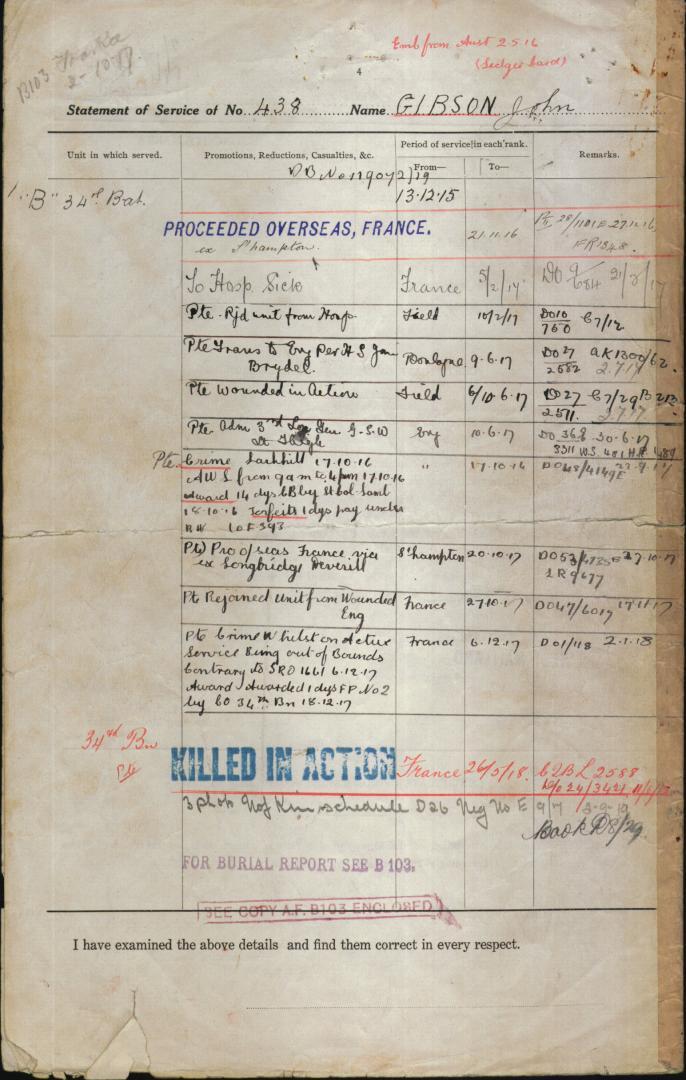 B103 Franka
2-10-17
Emb from Aust 2.5.16
(Ledger Card)
4
Statement of Service of No 438 Name GIBSON John
Unit in which served. Promotions, Reductions, Casualties, &c. Period of service in each rank. Remarks.
From— To—
"B" 34th Bat. 13.12.15
PROCEEDED OVERSEAS, FRANCE. 21.11.16
ex S'hampton.
To Hosp Sick France 5/2/17
Pte Rjd unit from Hosp Field 10/2/17 DO10
760 C7/12
Pte Trans to Eng Per H S Jan Boulogne 9.6.17 DO27 AK1300/62
Brydel. 2582 2.7.17
Pte Wounded in Action Field 6/10.6.17 DO27 C7/29 B213
2511. 2.7.17
Pte Adm 3rd Lon Gen G.S.W Eng 10.6.17 DO 368 30.6.17
Lt Thigh
Pte Crime Larkhill 17.10.16 " 17.10.16
AWL from 9am to 4pm 17.10.16
Award 14 dys CB by Lt Col Lamb
18.10.16 Forfeits 1 dys pay under
RW
Pte Pro o/seas France via S'hampton 20.10.17 27.10.17
ex Longbridge Deverill
Pt Rejoined Unit from Wounded France 27.10.17 DO47/6017 17.11.17
Eng
Pte Crime Whilst on Active France 6.12.17 DO1/118 2.1.18
Service Being out of Bounds
Contrary to SRO 1661 6.12.17
Award Awarded 1 dys FP No 2
by CO 34th Bn 18.12.17
34th Bn KILLED IN ACTION France 26/5/18. C2BL 2588
Pte
3 photo Nof Kin schedule D26 Neg No E 9/7 3-9-19
Book
FOR BURIAL REPORT SEE B 103.
SEE COPY A.F. B103 ENCLOSED
I have examined the above details and find them correct in every respect.